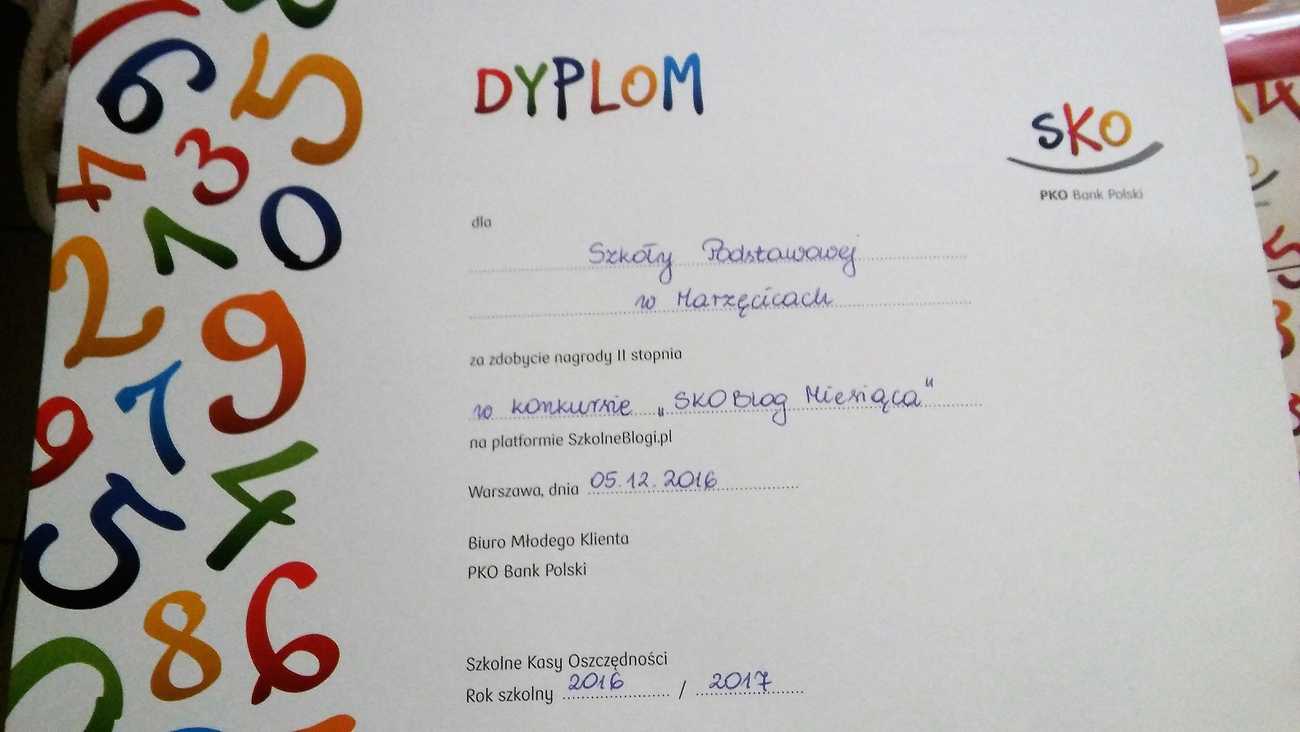 DYPLOM
SKO
PKO Bank Polski
dla
Szkoły Podstawowej
w Marzęcicach
za zdobycie nagrody II stopnia
w konkursie „SKOBlog Miesiąca"
na platformie SzkolneBlogi.pl
Warszawa, dnia 05.12.2016
Biuro Młodego Klienta
PKO Bank Polski
Szkolne Kasy Oszczędności
Rok szkolny 2016 / 2017